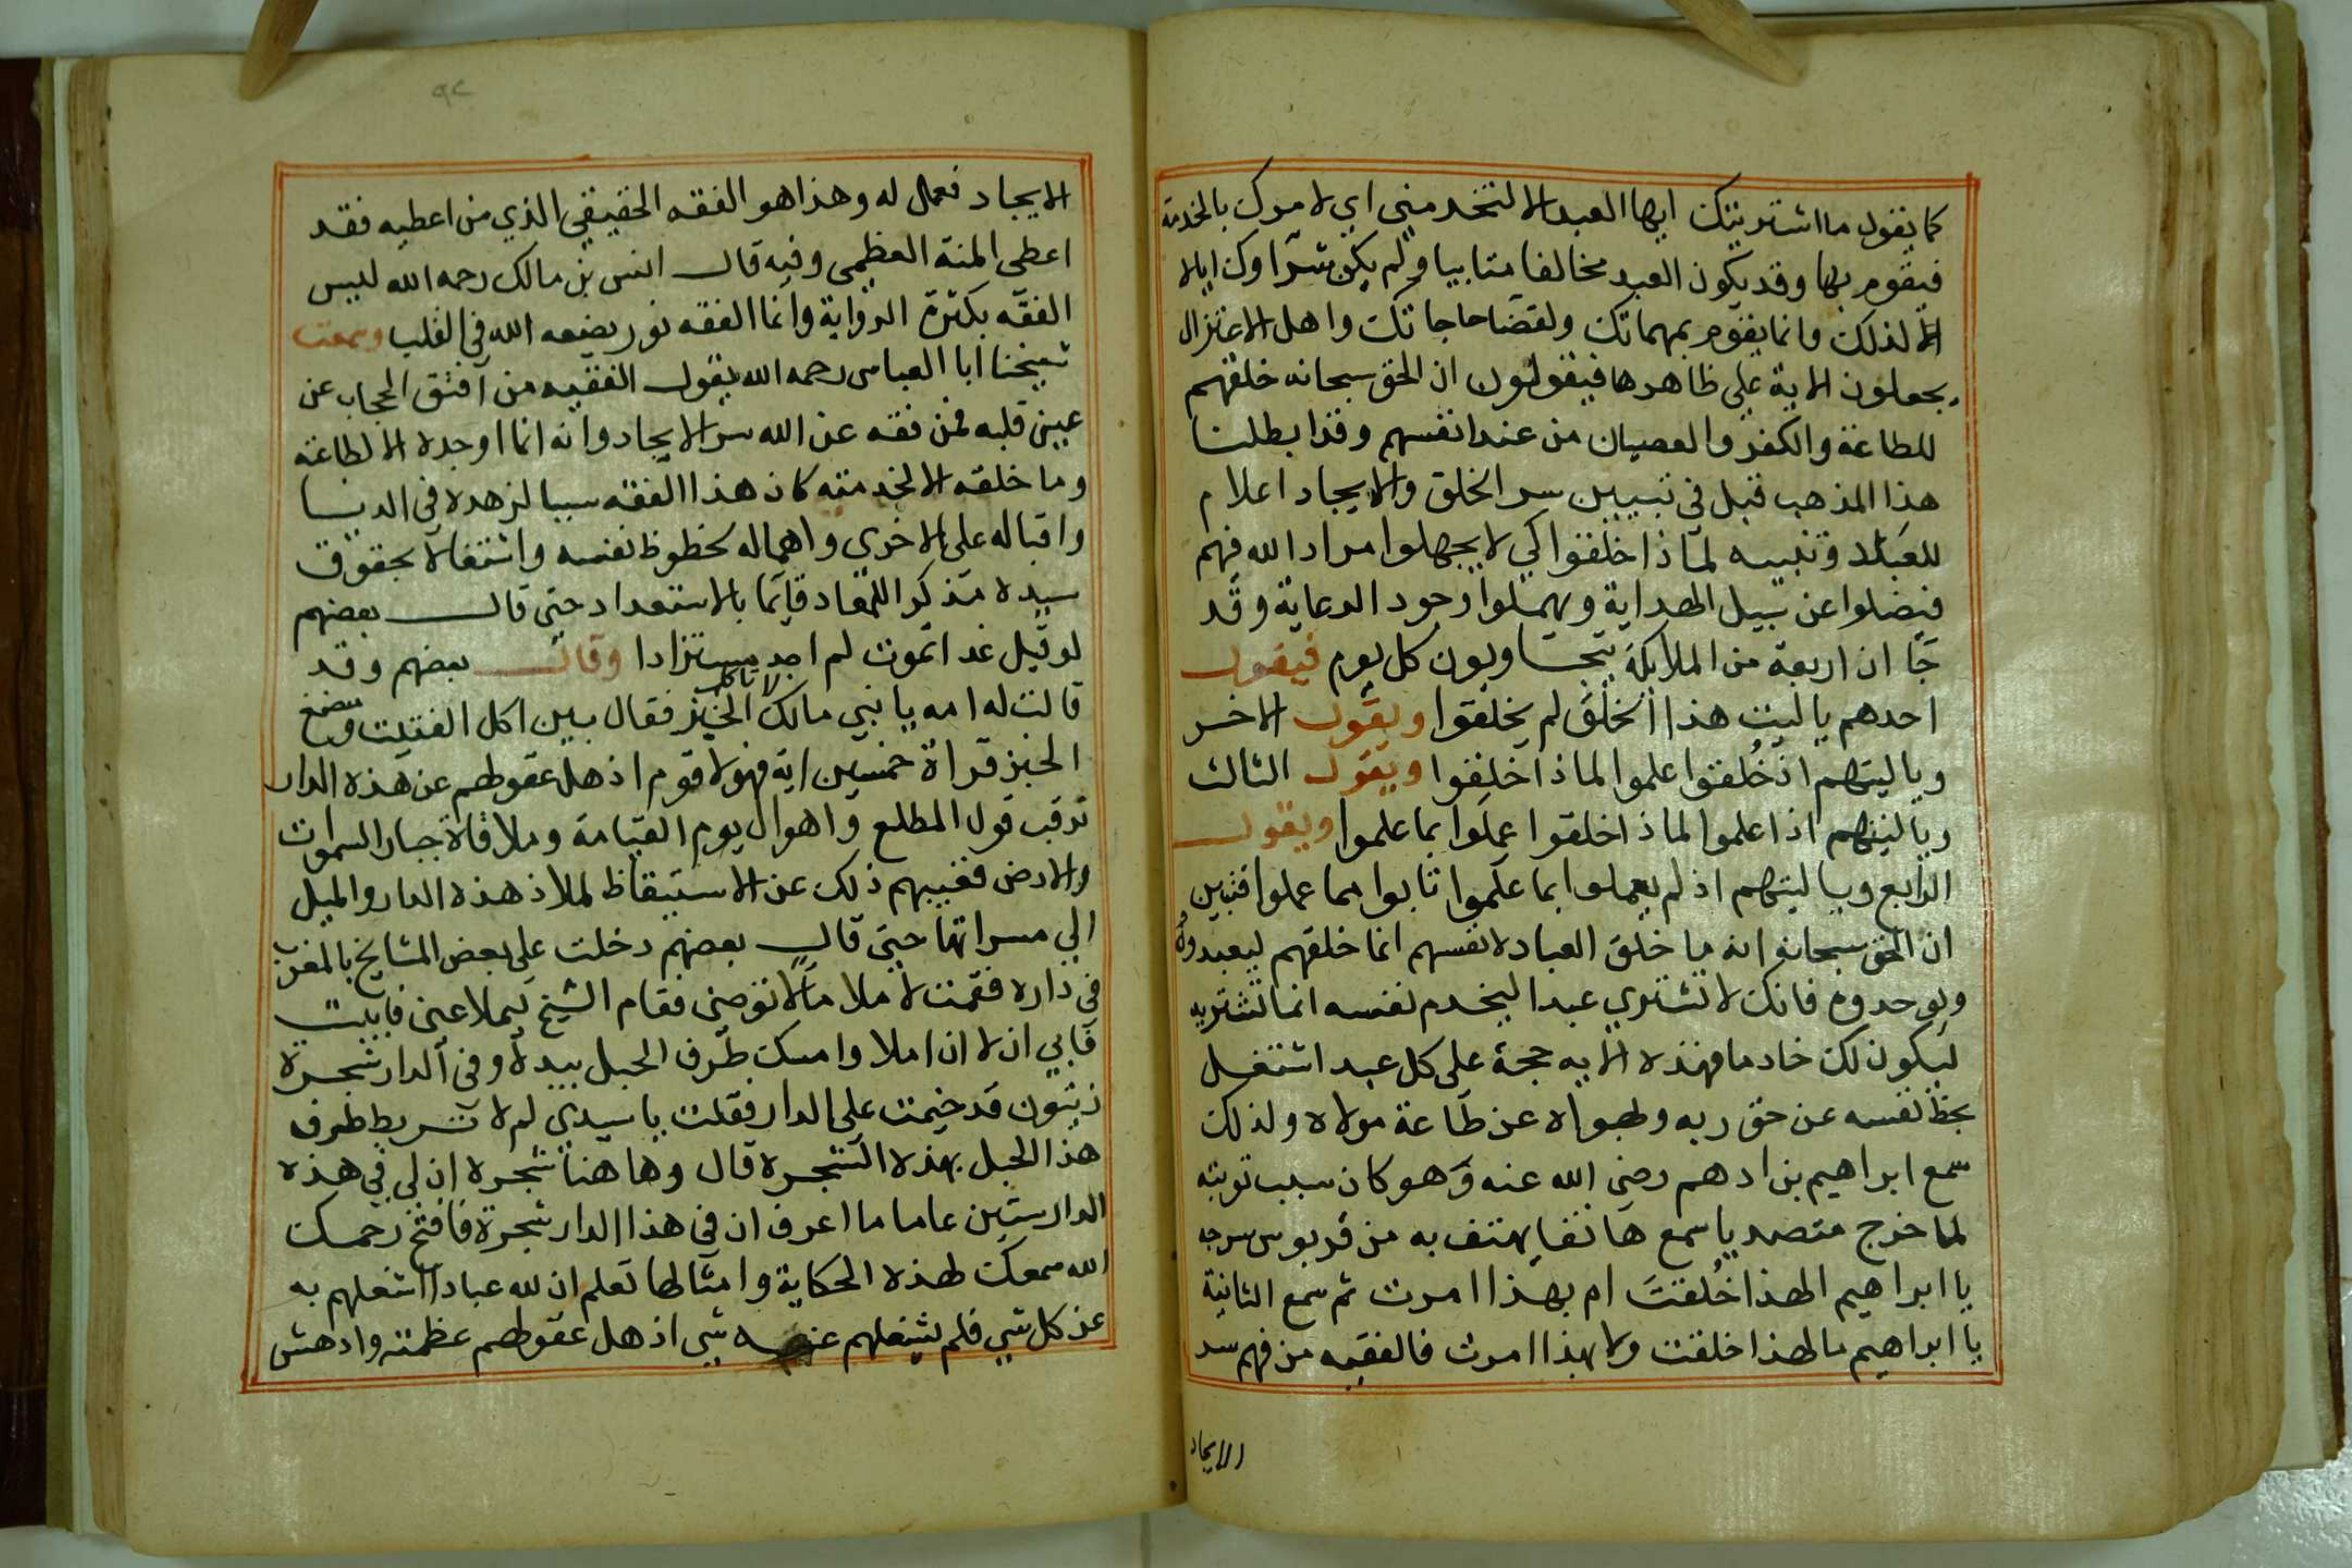 كما يقول ما اشتريتك ايها العبد الا لتخدمني اي لامرك بالخدمة
فيقوم بها وقد يكون العبد مخالفا متابيا ولم يكن شراوك اياه
الا لذلك وانما يقوم بمهماتك ولقضا حاجاتك واهل الاعتزال
يجعلون الاية على ظاهرها فيقولون ان الحق سبحانه خلقهم
للطاعة والكفر والعصيان من عند انفسهم وقد ابطلنا
هذا المذهب قبل في تبيين سر الخلق والايجاد اعلام
للعباد وتنبيه لماذا خلقوا كي لا يجهلوا مراد الله فهم
فيضلوا عن سبيل الهداية ويهملوا وجود الرعاية وقد
جا ان اربعة من الملايكة يتجاوبون كل يوم فيقول
احدهم يا ليت هذا الخلق لم يخلقوا ويقول الاخر
ويا ليتهم اذ خُلقوا علموا لماذا خلقوا ويقول الثالث
ويا ليتهم اذا علموا لماذا خلقوا عملوا بما علموا ويقول
الرابع ويا ليتهم اذ لم يعملوا بما علموا تابوا مما عملوا فتبين
ان الحق سبحانه انه ما خلق العباد لانفسهم انما خلقهم ليعبدوه
ويوحدوه فانك لا تشتري عبدا ليخدم نفسه انما تشتريه
ليكون لك خادما فهذه الايه حجة على كل عبد اشتغل
بحظ نفسه عن حق ربه وبهواه عن طاعة مولاه ولذلك
سمع ابراهيم بن ادهم رضي الله عنه وهو كان سبب توبته
لما خرج متصيديا سمع هاتفا يهتف به من قربوس سرجه
يا ابراهيم الهذا خُلقتَ ام بهذا امرت ثم سمع الثانية
يا ابراهيم ما لهذا خلقت ولا بهذا امرت فالفقيه من فهم سر
الايجاد
٩٢
الايجاد فعمل له وهذا هو الفقه الحقيقي الذي من اعطيه فقد
اعطى المنة العظمى وفيه قال انس بن مالك رحمه الله ليس
الفقه بكثرة الرواية وانما الفقه نور يضعه الله في القلب وسمعت
شيخنا ابا العباس رحمه الله يقول الفقيه من انفتق الحجاب عن
عيني قلبه فمن فقه عن الله سر الايجاد وانه انما اوجده الا لطاعته
وما خلقه الا لخدمته كان هذا الفقه سببا لزهده في الدنيا
واقباله على الاخرى واهماله لحظوظ نفسه واشتغاله بحقوق
سيده مذكرا للمعاد قايما بالاستعداد حتى قال بعضهم
لو قيل غدا تموت لم اجد مستزادا وقال بعضهم وقد
قالت له امه يا بني مالك لا تاكل الخبز فقال بين اكل الفتيت ومضغ
الخبز قراة خمسين اية فهولا قوم اذهل عقولهم عن هذه الدار
ترقب قول المطلع واهوال يوم القيامة وملاقاة جبار السموات
والارض فغيبهم ذلك عن الاستيقاظ لملاذ هذه الدار والميل
الي مسراتها حتى قال بعضهم دخلت على بعض المشايخ بالمغرب
في داره فقمت لاملا ما لاتوضى فقام الشيخ ليملا عني فابيت
فابي ان لا ان املا وامسك طرف الحبل بيده وفي الدار شجرة
زيتون قد خيمت على الدار فقلت يا سيدي لم لا تربط طرف
هذا الحبل بهذه الشجرة قال وها هنا شجرة ان لي في هذه
الدار ستين عاما ما اعرف ان في هذا الدار شجرة فافتح رحمك
الله سمعك لهذه الحكاية وامثالها تعلم ان لله عبادا اشغلهم به
عن كل شي فلم يشغلهم عنه شي اذهل عقولهم عظمته وادهش